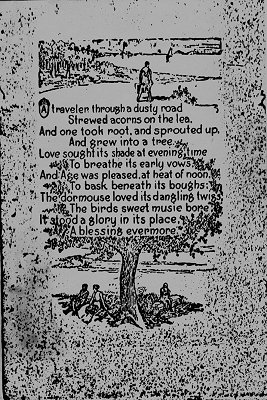 A traveler through a dusty road
Strewed acorns on the lea,
And one took root, and sprouted up,
And grew into a tree.
Love sought its shade at evening time
To breathe its early vows,
And Age was pleased, at heat of noon,
To bask beneath its boughs:
The dormouse loved its dangling twigs,
The birds sweet music bore,
It stood a glory in its place,
A blessing evermore.